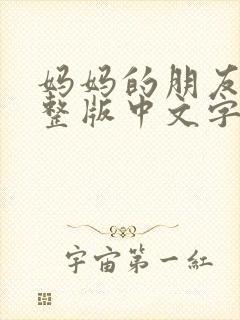 妈妈的朋友
整版中文字
宇宙第一紅